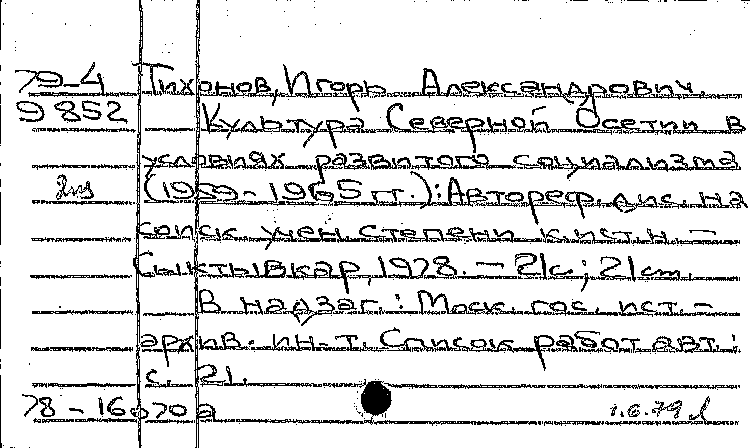 79-4 Тихонов, Игорь Александрович.
9852 Культура Северной Осетии в
условиях развитого социализма
(1959-1965 гг.): Автореф. дис. на
соиск. учен. степени к.ист.н. -
Сыктывкар, 1978. - 21с.; 21 см.
В надзаг.: Моск. гос. ист.-
архив. ин-т. Список работ авт.:
с. 21.
78-16070а 1.6.79